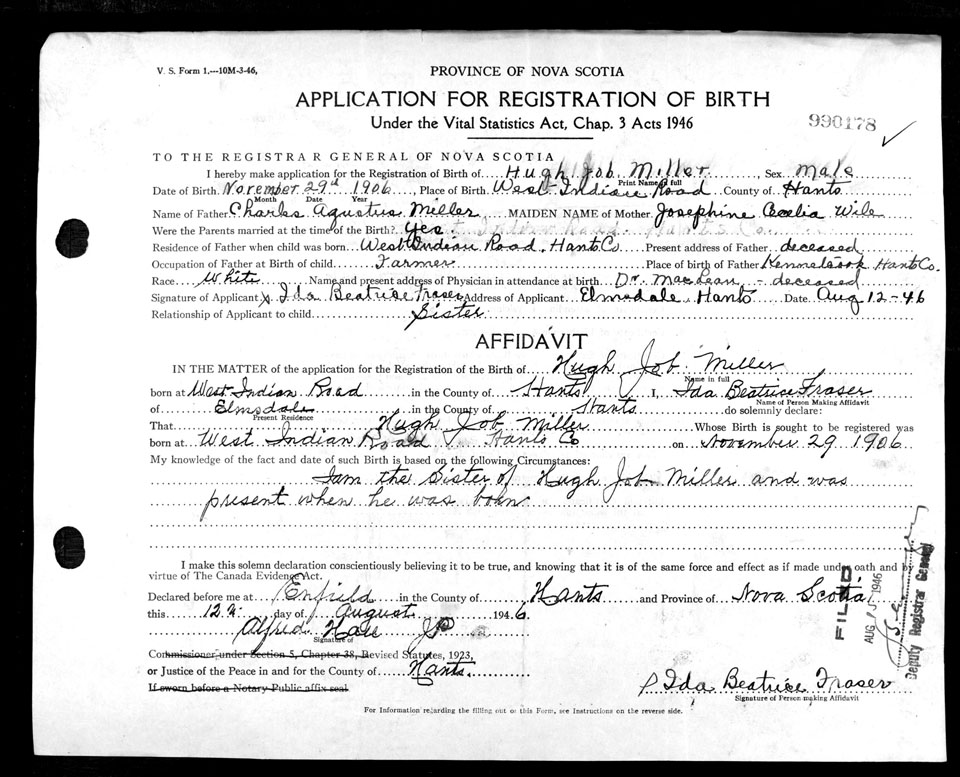 V. S. Form 1.—10M-3-46,
PROVINCE OF NOVA SCOTIA
APPLICATION FOR REGISTRATION OF BIRTH
Under the Vital Statistics Act, Chap. 3 Acts 1946
990178
TO THE REGISTRAR GENERAL OF NOVA SCOTIA
I hereby make application for the Registration of Birth of Hugh Job Miller Sex Male
Print Name in full
Date of Birth November 29th 1906, Place of Birth West Indian Road County of Hants
Month Date Year
Name of Father Charles Agustus Miller, MAIDEN NAME of Mother Josephine Cecelia Wile
Were the Parents married at the time of the Birth? Yes
Residence of Father when child was born West Indian Road, Hants Co. Present address of Father deceased
Occupation of Father at Birth of child Farmer Place of birth of Father Kennetcook Hants Co.
Race White Name and present address of Physician in attendance at birth Dr. MacLean - deceased
Signature of Applicant x Ida Beatrice Fraser Address of Applicant Elmsdale Hants Date Aug 12-46
Relationship of Applicant to child Sister
AFFIDAVIT
IN THE MATTER of the application for the Registration of the Birth of Hugh Job Miller
Name in full
born at West Indian Road in the County of Hants I, Ida Beatrice Fraser
Name of Person Making Affidavit
of Elmsdale in the County of Hants do solemnly declare:
Present Residence
That Hugh Job Miller Whose Birth is sought to be registered was
born at West Indian Road Hants Co on November 29 1906
My knowledge of the fact and date of such Birth is based on the following Circumstances:
I am the Sister of Hugh Job Miller and was
present when he was born
I make this solemn declaration conscientiously believing it to be true, and knowing that it is of the same force and effect as if made under oath and by
virtue of The Canada Evidence Act.
Declared before me at Enfield in the County of Hants and Province of Nova Scotia
this 12th day of August 1946.
Alfred Hall JP
Signature of
Commissioner under Section 5, Chapter 38, Revised Statutes, 1923,
or Justice of the Peace in and for the County of Hants.
If sworn before a Notary Public affix seal
Ida Beatrice Fraser
Signature of Person making Affidavit
FILED
AUG 15 1946
Deputy Registrar General
For Information regarding the filling out of this Form, see Instructions on the reverse side.